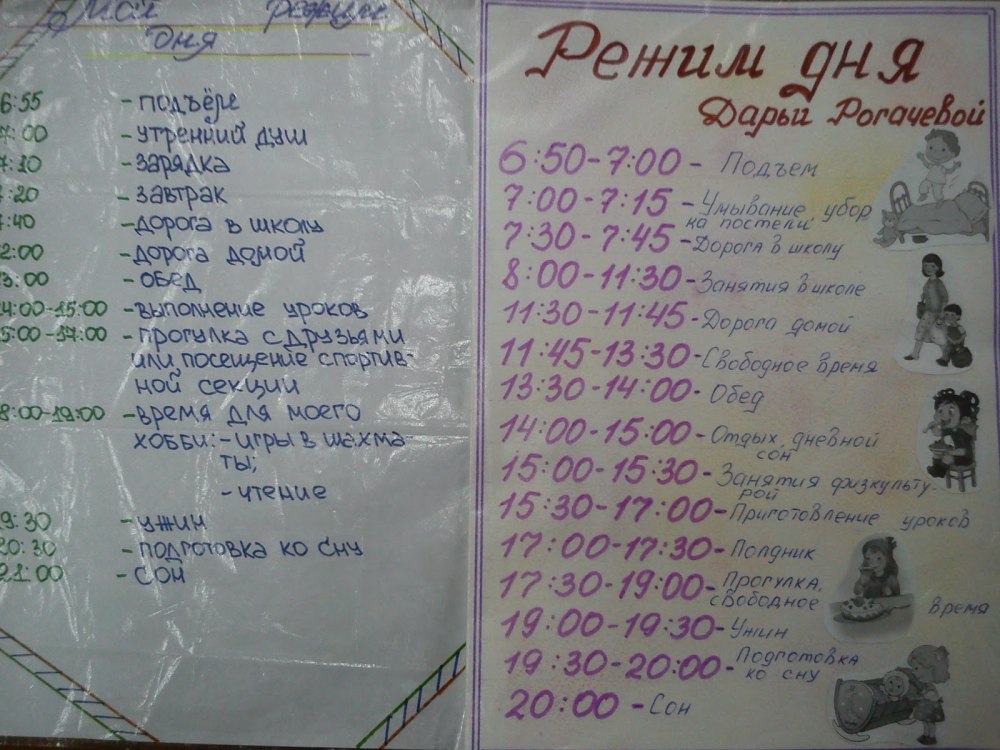 Мой режим
дня
6:55 - подъём
7:00 - утренний душ
7:10 - зарядка
:20 - завтрак
:40 - дорога в школу
2:00 - дорога домой
3:00 - обед
14:00-15:00 - выполнение уроков
15:00-17:00 - прогулка с друзьями
или посещение спортив-
ной секции
8:00-19:00 - время для моего
хобби: - игры в шахма-
ты;
- чтение
19:30 - ужин
20:30 - подготовка ко сну
21:00 - сон
Режим дня
Дарьи Рогачевой
6:50-7:00 - Подъем
7:00 - 7:15 - Умывание, убор
ка постели
7:30 - 7:45 - Дорога в школу
8:00 - 11:30 - Занятия в школе
11:30 - 11:45 - Дорога домой
11:45 - 13:30 - Свободное время
13:30 - 14:00 - Обед
14:00 - 15:00 - Отдых, дневной
сон
15:00 - 15:30 - Занятия физкульту-
рой
15:30 - 17:00 - Приготовление уроков
17:00 - 17:30 - Полдник
17:30 - 19:00 - Прогулка,
свободное время
19:00 - 19:30 - Ужин
19:30 - 20:00 - Подготовка
ко сну
20:00 - Сон